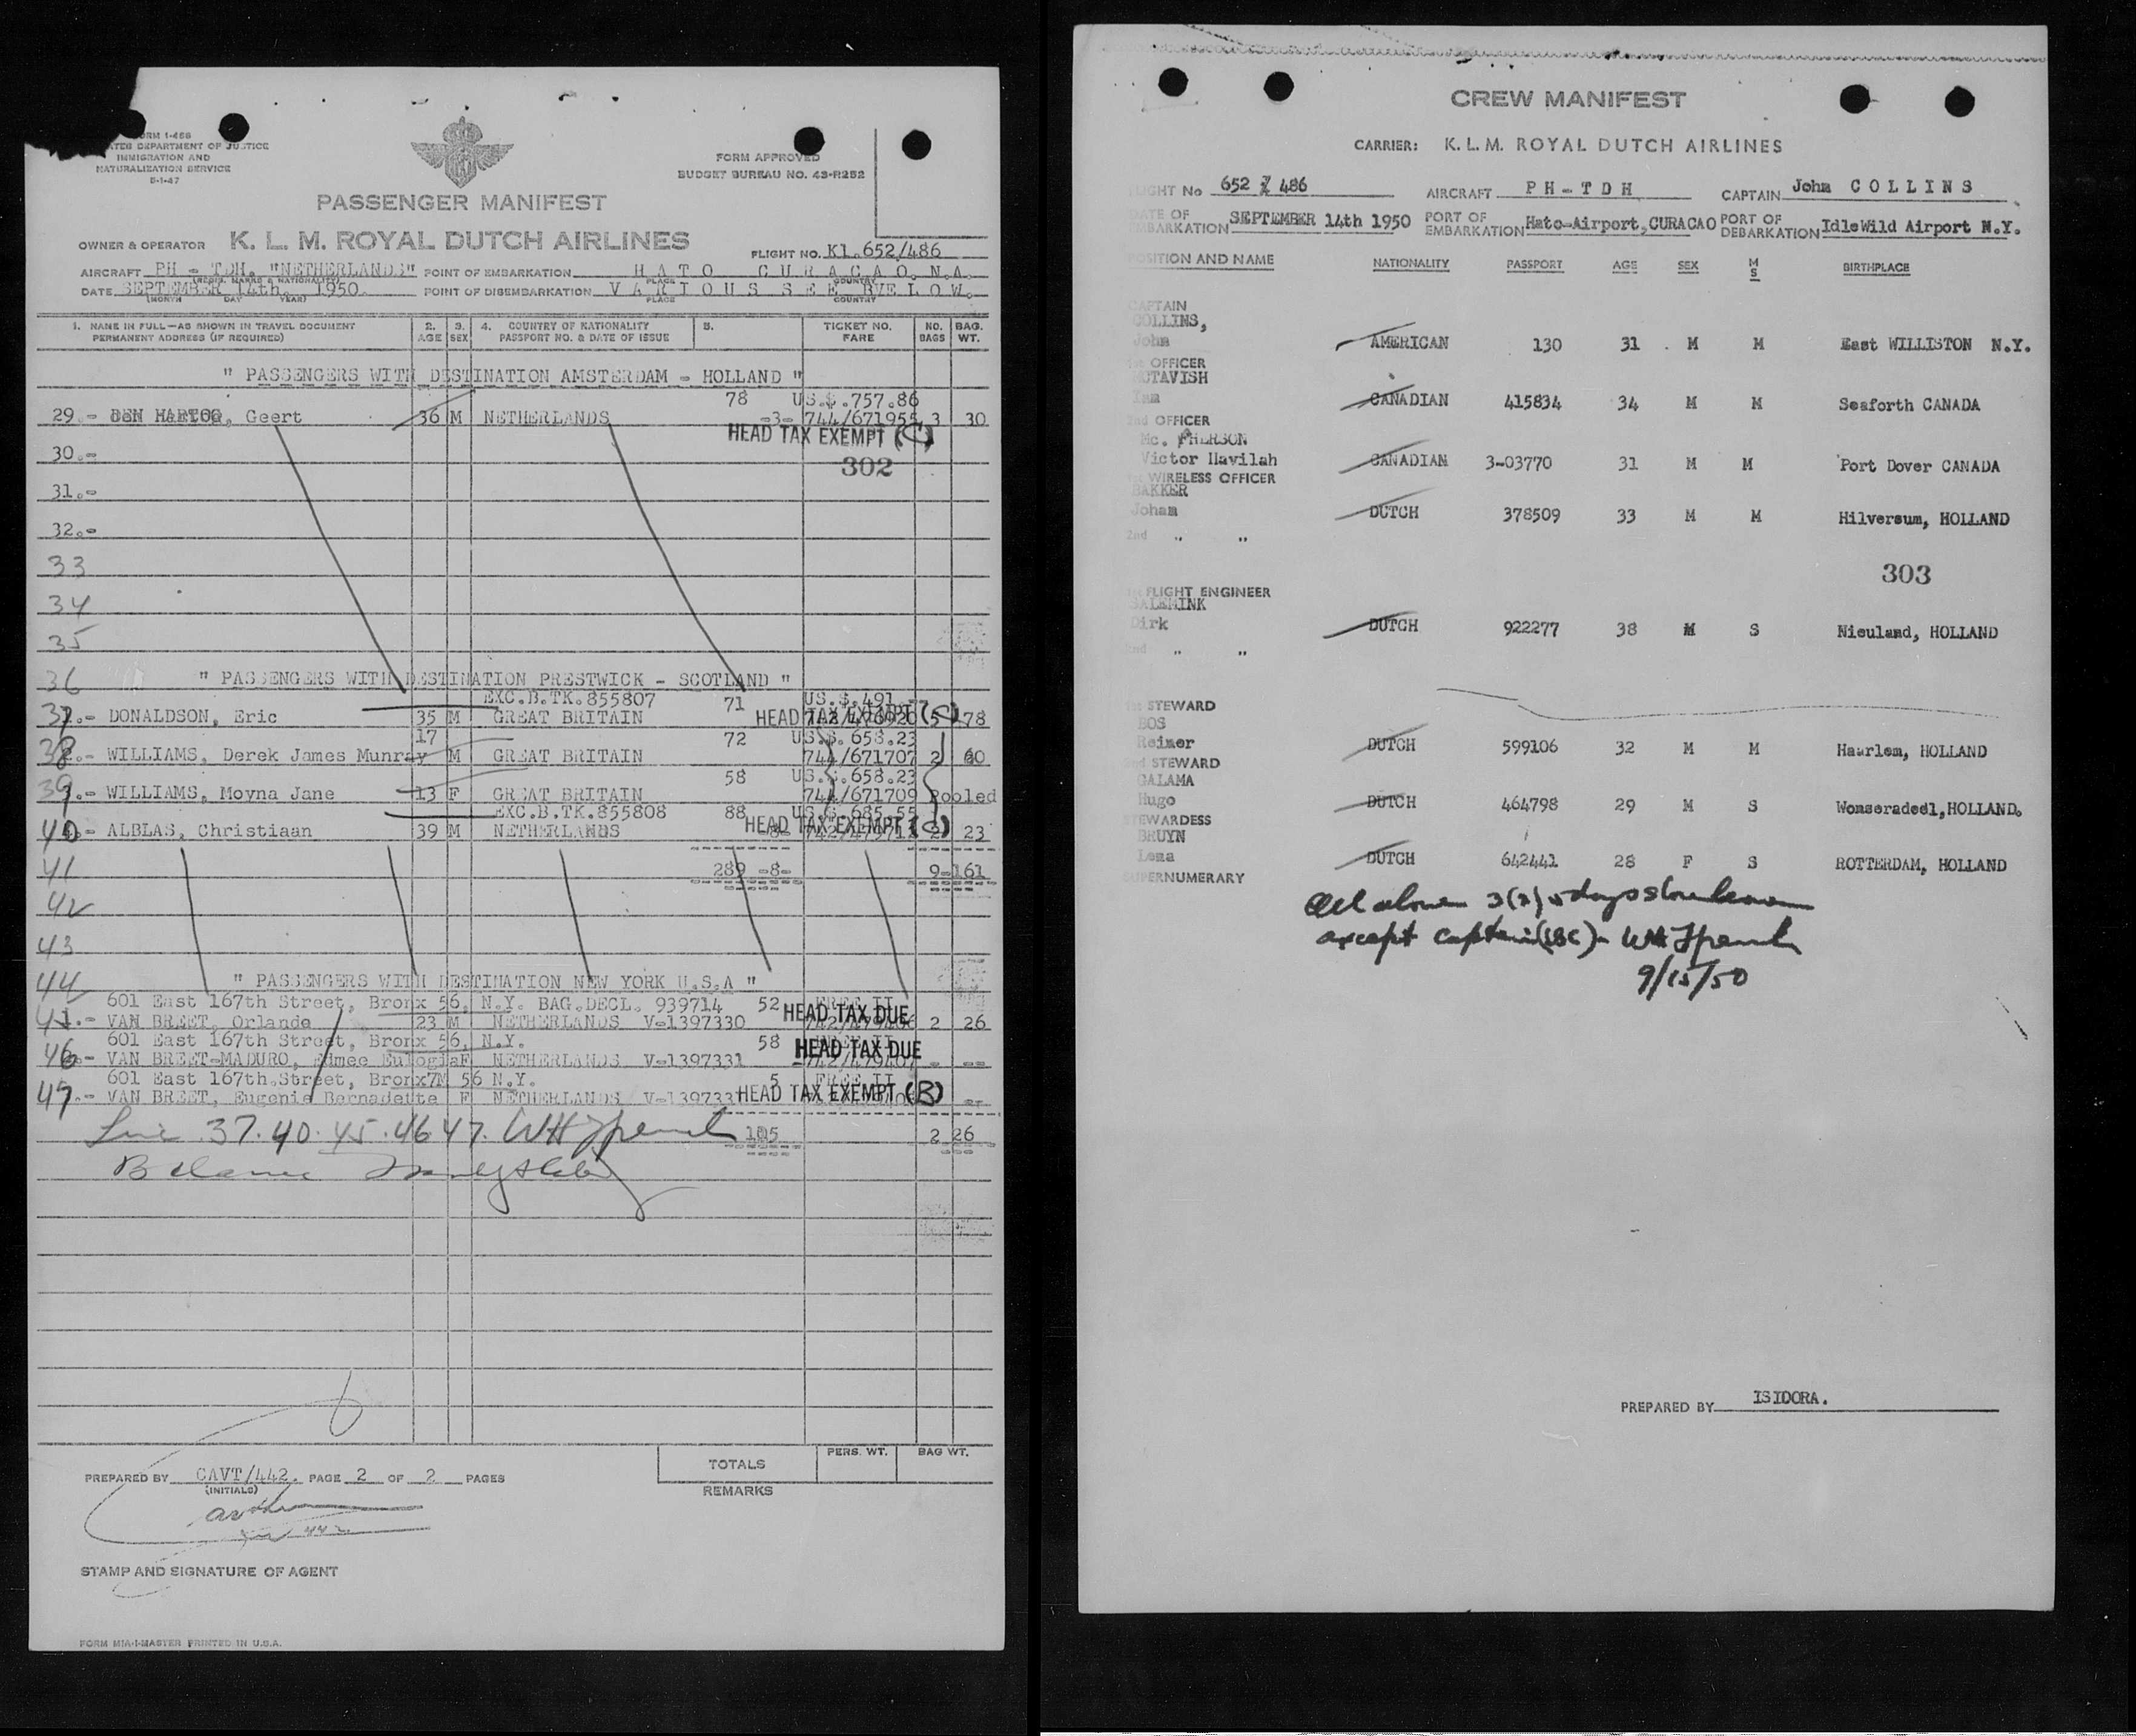 FORM 1-466
DEPARTMENT OF JUSTICE
IMMIGRATION AND
NATURALIZATION SERVICE
5-1-47
FORM APPROVED
BUDGET BUREAU NO. 43-R252
PASSENGER MANIFEST
OWNER & OPERATOR K. L. M. ROYAL DUTCH AIRLINES FLIGHT NO. Kl.652/486
AIRCRAFT PH - TDH. "NETHERLANDS" POINT OF EMBARKATION H A T O C U R A C A O. N.A.
(REGIS. MARKS & NATIONALITY) PLACE COUNTRY
DATE SEPTEMBER 14th. 1950. POINT OF DISEMBARKATION V A R I O U S S E E BVE L O W.
(MONTH DAY YEAR) PLACE COUNTRY
1. NAME IN FULL—AS SHOWN IN TRAVEL DOCUMENT 2. 3. 4. COUNTRY OF NATIONALITY 5. TICKET NO. NO. BAG.
PERMANENT ADDRESS (IF REQUIRED) AGE SEX PASSPORT NO. & DATE OF ISSUE FARE BAGS WT.
" PASSENGERS WITH DESTINATION AMSTERDAM - HOLLAND "
78 US.$.757.86
29.- DEN HARTOG, Geert 36 M NETHERLANDS -3- 744/671955 3 30
HEAD TAX EXEMPT (C)
30.- 302
31.-
32.-
33
34
35
36 " PASSENGERS WITH DESTINATION PRESTWICK - SCOTLAND "
EXC.B.TK.855807 71 US.$.491.-
37.- DONALDSON, Eric 35 M GREAT BRITAIN HEAD TAX EXEMPT (C) 5 78
17 72 US.$. 658.23
38.- WILLIAMS, Derek James Munray M GREAT BRITAIN 744/671707 2 60
58 US.$.658.23
39.- WILLIAMS, Moyna Jane 13 F GREAT BRITAIN 744/671709 Pooled
EXC.B.TK.855808 88 US.$.685.55
40- ALBLAS, Christiaan 39 M NETHERLANDS -8- HEAD TAX EXEMPT (C) 2 23
41 289 -8- 9-161
42
43
44 " PASSENGERS WITH DESTINATION NEW YORK U.S.A "
601 East 167th Street, Bronx 56, N.Y. BAG.DECL. 939714 52 FREE II
45.- VAN BREET, Orlando 23 M NETHERLANDS V-1397330 HEAD TAX DUE 2 26
601 East 167th Street, Bronx 56, N.Y. 58
46- VAN BREET-MADURO, Edmee Eulogia F NETHERLANDS V-1397331 HEAD TAX DUE - --
601 East 167th.Street, Bronx7M 56 N.Y. 5 FREE II
47.- VAN BREET, Eugenie Bernadette F NETHERLANDS HEAD TAX EXEMPT (B)
37. 40. 45. 46 47. 2 26
PREPARED BY CAVT/442. PAGE 2 OF 2 PAGES
(INITIALS)
442
STAMP AND SIGNATURE OF AGENT
TOTALS PERS. WT. BAG WT.
REMARKS
FORM MIA-1-MASTER PRINTED IN U.S.A.
CREW MANIFEST
CARRIER: K. L. M. ROYAL DUTCH AIRLINES
FLIGHT No 652 / 486 AIRCRAFT PH-TDH CAPTAIN John COLLINS
DATE OF EMBARKATION SEPTEMBER 14th 1950 PORT OF EMBARKATION Hato-Airport, CURACAO PORT OF DEBARKATION IdleWild Airport N.Y.
POSITION AND NAME NATIONALITY PASSPORT AGE SEX M S BIRTHPLACE
CAPTAIN
COLLINS,
John AMERICAN 130 31 . M M East WILLISTON N.Y.
1st OFFICER
MCTAVISH
Ian CANADIAN 415834 34 M M Seaforth CANADA
2nd OFFICER
Mc. PHERSON
Victor Havilah CANADIAN 3-03770 31 M M Port Dover CANADA
1st WIRELESS OFFICER
BAKKER
Johan DUTCH 378509 33 M M Hilversum, HOLLAND
2nd " "
303
1st FLIGHT ENGINEER
SALEMINK
Dirk DUTCH 922277 38 M S Nieuland, HOLLAND
2nd " "
1st STEWARD
BOS
Reimer DUTCH 599106 32 M M Haarlem, HOLLAND
2nd STEWARD
GALAMA
Hugo DUTCH 464798 29 M S Womseradeel, HOLLAND.
STEWARDESS
BRUYN
Lena DUTCH 642441 28 F S ROTTERDAM, HOLLAND
SUPERNUMERARY
All above 3(5) days
except Captain
9/15/50
PREPARED BY ISIDORA.